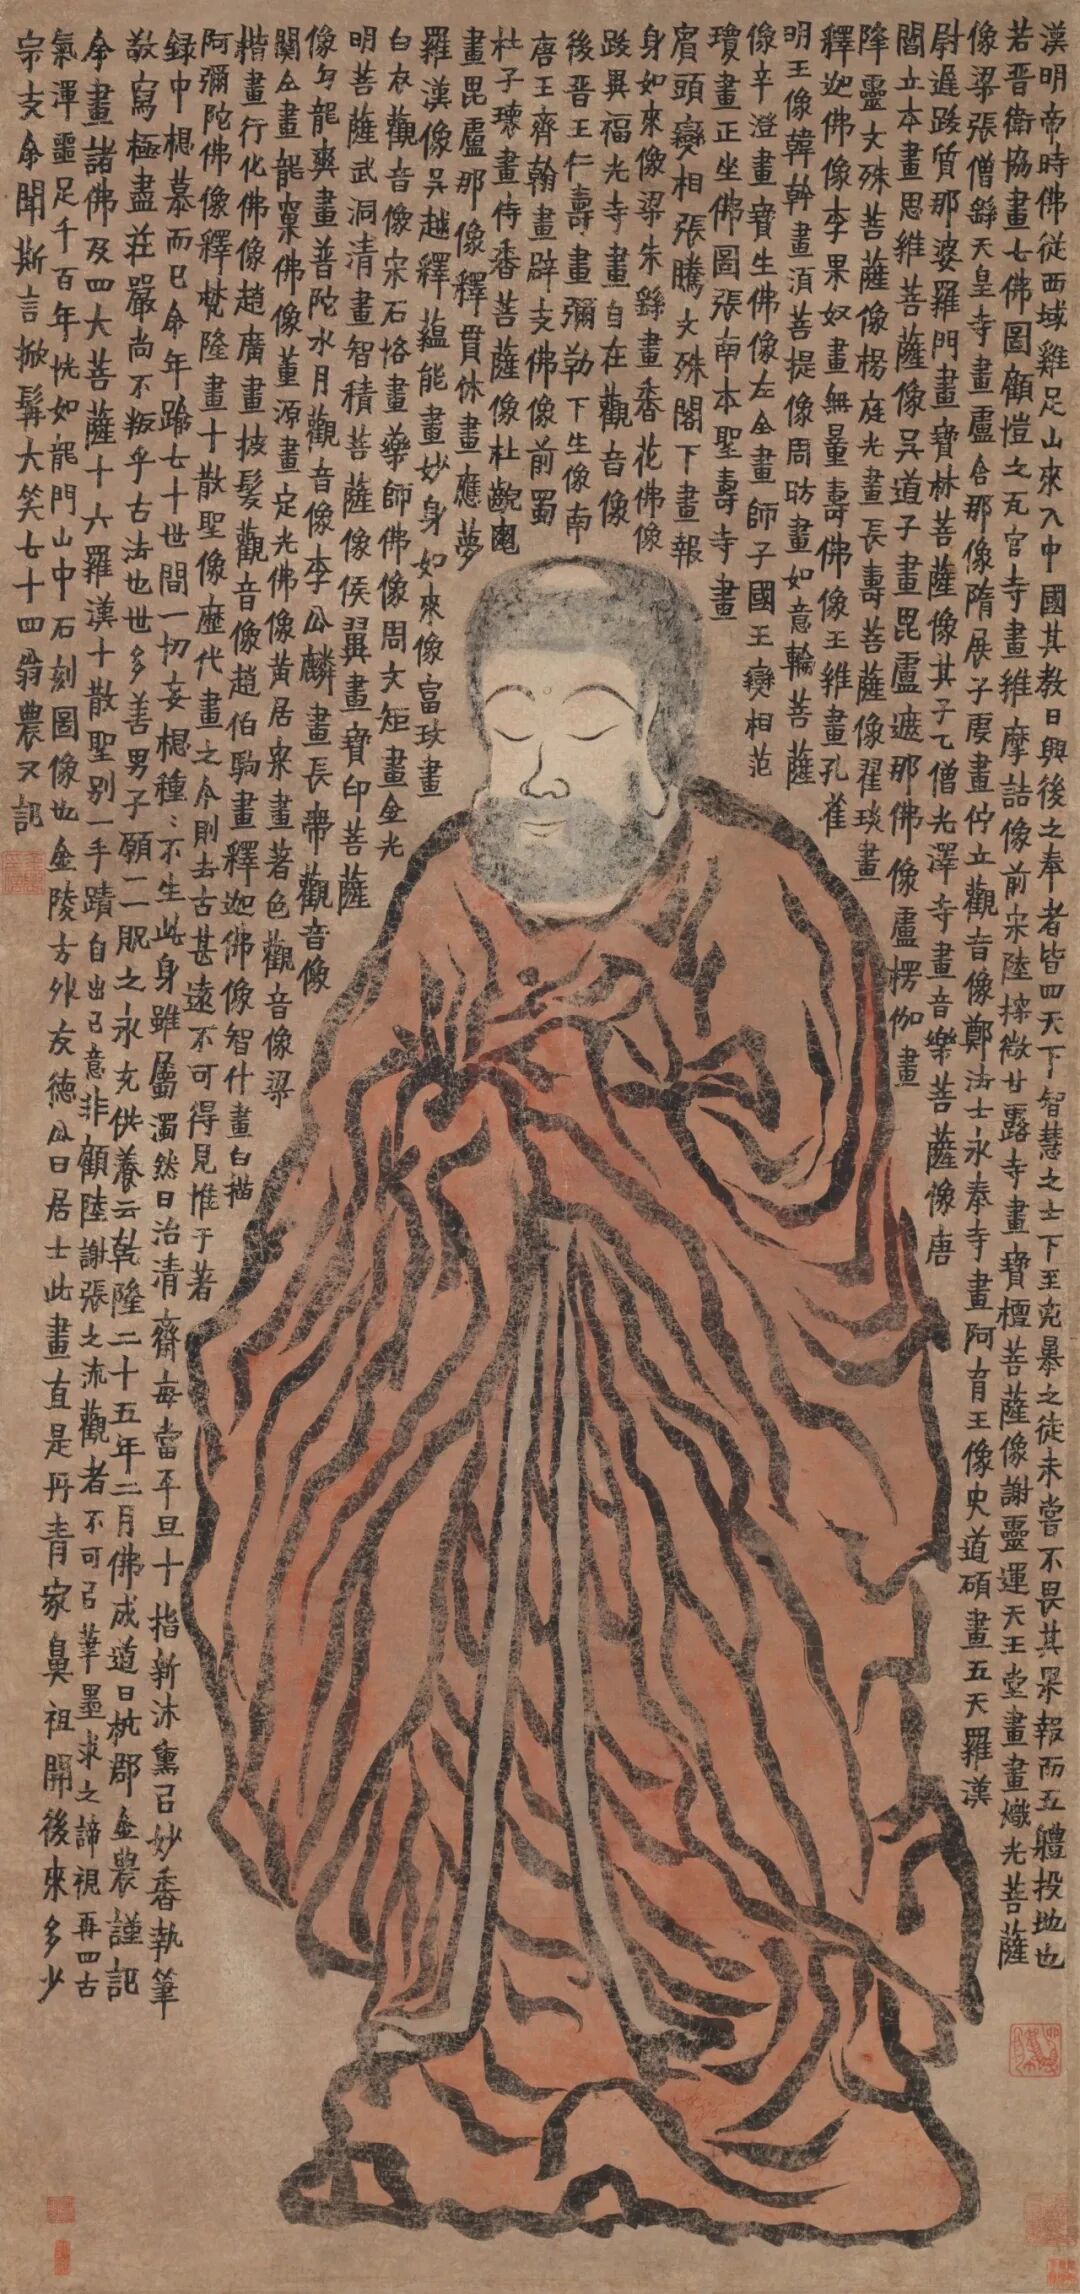 漢明帝時佛從西域雞足山來入中國其教日興後之奉者皆四天下智慧之士下至兇暴之徒未嘗不畏其果報而五體投地也
若晉衛協畫七佛圖顧愷之瓦官寺畫維摩詰像前宋陸探微甘露寺畫寶檀菩薩像謝靈運天王堂畫畫熾光菩薩
像梁張僧繇天皇寺畫盧舍那像隋展子虔畫佇立觀音像鄭法士永泰寺畫阿育王像史道碩畫五天羅漢
尉遲跋質那婆羅門畫寶林菩薩像其子乙僧光澤寺畫音樂菩薩像唐
閻立本畫思維菩薩像吳道子畫毘盧遮那佛像盧楞伽畫
降靈文殊菩薩像楊庭光畫長壽菩薩像翟琰畫
釋迦佛像李果奴畫無量壽佛像王維畫孔雀
明王像韓幹畫須菩提像周昉畫如意輪菩薩
像辛澄畫寶生佛像左全畫師子國王變相范
瓊畫正坐佛圖張南本聖壽寺畫
賓頭變相張騰文殊閣下畫報
身如來像梁朱繇畫香花佛像
跋異福光寺畫自在觀音像
後晉王仁壽畫彌勒下生像南
唐王齊翰畫辟支佛像前蜀
杜子瓌畫侍香菩薩像杜齯龜
畫毘盧那像釋貫休畫應夢
羅漢像吳越釋蘊能畫妙身如來像富玫畫
白衣觀音像宋石恪畫藥師佛像周文矩畫金光
明菩薩武洞清畫智積菩薩像侯翼畫寶印菩薩
像勾龍爽畫普陀水月觀音像李公麟畫長帶觀音像
關仝畫龍窠佛像董源畫定光佛像黃居寀畫著色觀音像梁
楷畫行化佛像趙廣畫披髮觀音像趙伯駒畫釋迦佛像智什畫白描
阿彌陀佛像釋梵隆畫十散聖像歷代畫之今則去古甚遠不可得見惟于著
録中想慕而已余年踰七十世間一切妄想種〻不生此身雖屬濁然日治清齋每當平旦十指新沐熏㠯妙香執筆
敬寫極盡莊嚴尚不叛乎古法也世多善男子願一一貺之永充供養云乾隆二十五年二月佛成道日杭郡金農謹記
余畫諸佛及四大菩薩十六羅漢十散聖別一手蹟自出己意非顧陸謝張之流觀者不可㠯筆墨求之諦視再四古
氣渾噩足千百年恍如龍門山中石刻圖像也金陵方外友德公曰居士此畫直是丹青家鼻祖開後來多少
宗支余聞斯言掀髯大笑七十四翁農又記